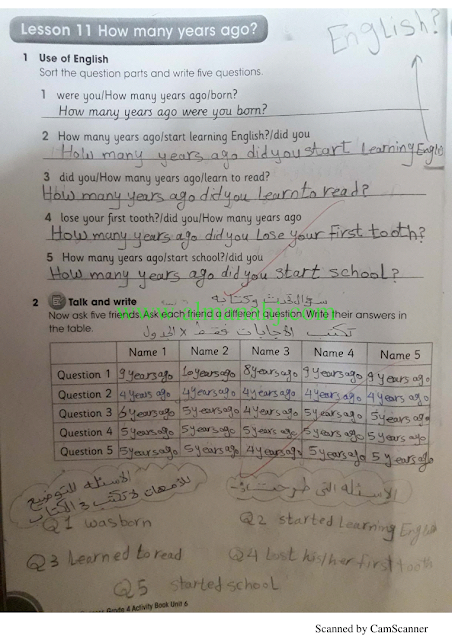 English?
Lesson 11 How many years ago?
1 Use of English
Sort the question parts and write five questions.
1 were you/How many years ago/born?
How many years ago were you born?
2 How many years ago/start learning English?/did you
How many years ago did you start learning English
3 did you/How many years ago/learn to read?
How many years ago did you learn to read?
4 lose your first tooth?/did you/How many years ago
How many years ago did you lose your first tooth?
5 How many years ago/start school?/did you
How many years ago did you start school?
2 Talk and write
Now ask five friends. Ask each friend a different question. Write their answers in
the table.
تكتب الاجابات فقط × الجدول
Name 1 Name 2 Name 3 Name 4 Name 5
Question 1 9 years ago 10 years ago 8 years ago 9 years ago 9 years ago
Question 2 4 years ago 4 years ago 4 years ago 4 years ago 4 years ago
Question 3 6 years ago 5 years ago 4 years ago 5 years ago 5 years ago
Question 4 5 years ago 5 years ago 5 years ago 5 years ago 5 years ago
Question 5 5 years ago 5 years ago 4 years ago 5 years ago 5 years ago
الاسئله التي طرحت
الاسئله للتوضيح
Q1 was born
Q2 started learning English
Q3 Learned to read
Q4 Lost his/her first tooth
Q5 started school
Grade 4 Activity Book Unit 6
Scanned by CamScanner